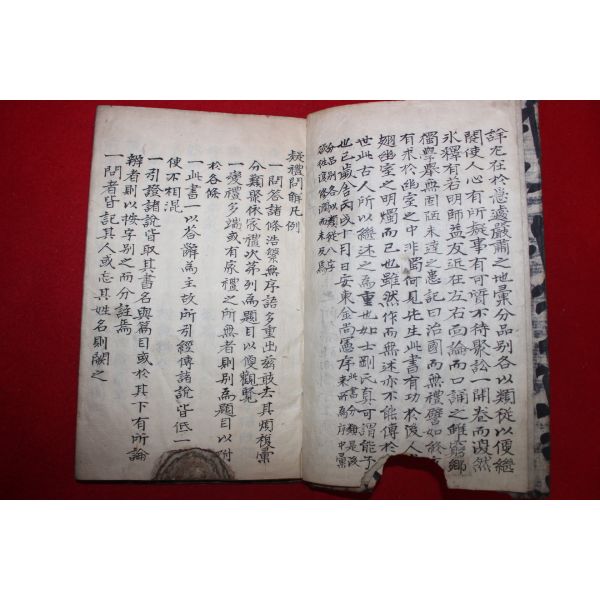 詳尤在於急遽嚴肅之地彙分品別各以類從以便繼
閱使人心有所疑事有可質不待聚訟一開卷而渙然
氷釋有若明師益友近在左右面論而口誦之雖窮鄉
獨學擧無固陋未達之患記曰治國而無禮譬如終
有求於幽室之中非燭何見先生此書有功於後人
幽室之明燭而已也雖然作而無述亦不能傳於
世此古人所以繼述之爲重也如士剛氏眞可謂能子
也已歲舍丙戌十月日安東金尚憲序 此書分類是 來所爲序中彙
分品別各以類從八字
疑禮問解凡例
一問答諸條浩繁無序語多重出玆敢去其煩複彙
分類聚依家禮次第列爲題目以便觀覽
一變禮多端或有家禮之所無者則別爲題目以附
於各條
一此書一以答辭爲主故所引經傳諸說皆低一
使不相混
一引證諸說皆取其書名與篇目或於其下有所論
辨者則以按字別之而分註焉
一問者皆記其人或忘其姓名則闕之